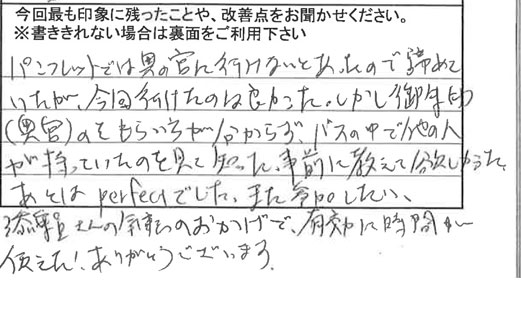 今回最も印象に残ったことや、改善点をお聞かせください。
※書ききれない場合は裏面をご利用下さい
パンフレットでは奥の宮に行けないとあったので諦めて
いたが、今回行けたのは良かった。しかし御朱印
(奥宮)のをもらい方が分からず、バスの中で他の人
が持っていたのを見て知った、事前に教えて欲しかった。
あとはperfectでした。また参加したい、
添乗員さんの気転のおかげで、有効に時間が
使えた!ありがとうございます。